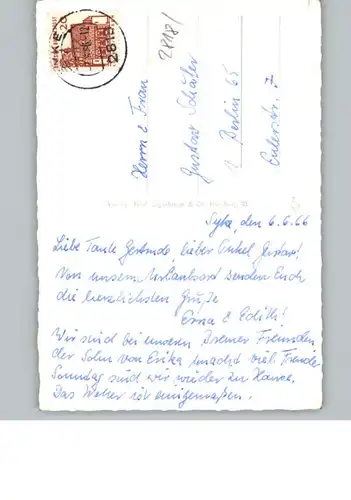 20
SYKE
2818
2818/
Herrn & Frau
Gustav Schäfer
1 Berlin 65
Eulerstr. 7
Syke, den 6.6.66
Liebe Tante Gertrude, lieber Onkel Gustav!
Von unserem Urlaubsort senden Euch
die herzlichsten Grüße
Erna & Edith!
Wir sind bei unseren Bremer Freunden
der Sohn von Erika macht viel Freude
Sonntag sind wir wieder zu Hause.
Das Wetter ist einigermaßen.